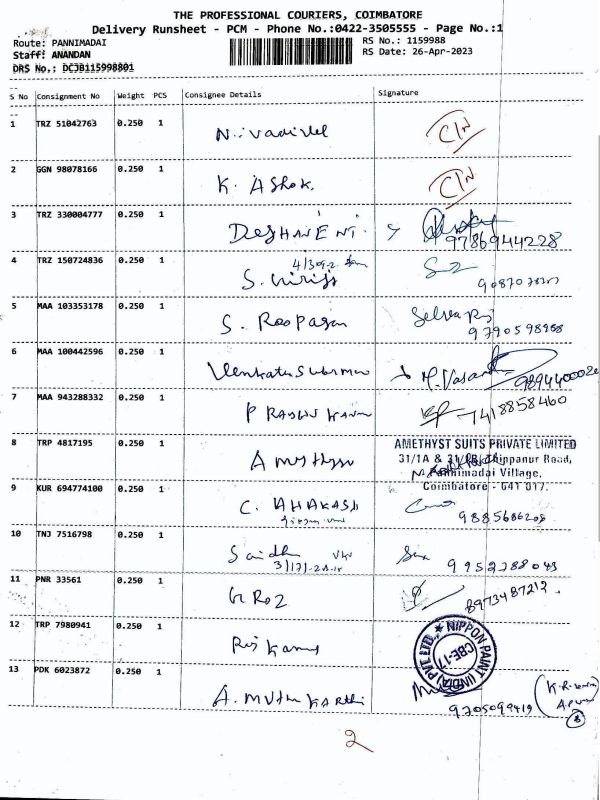 THE PROFESSIONAL COURIERS, COIMBATORE
Delivery Runsheet - PCM - Phone No.:0422-3505555 - Page No.:1
Route: PANNIMADAI
RS No.: 1159988
Staff: ANANDAN
RS Date: 26-Apr-2023
DRS No.: DCJB115998801
S No Consignment No Weight PCS Consignee Details Signature
1 TRZ 51042763 0.250 1 N. Vadivel C/N
2 GGN 98078166 0.250 1 K. Ashok. C/N
3 TRZ 330004777 0.250 1 DESHAVENI.
9786944228
4 TRZ 150724836 0.250 1 4/309-2
S.
5 MAA 103353178 0.250 1 S. Roopagan Selva Raj
9790598968
6 MAA 100442596 0.250 1 M. Vasan
7 MAA 943288332 0.250 1 7418858460
8 TRP 4817195 0.250 1 AMETHYST SUITS PRIVATE LIMITED
31/1A & Thippanur Road,
Village,
Coimbatore - 641 017.
9 KUR 694774100 0.250 1 C.
9885686208
10 TNJ 7516798 0.250 1 Saidha
9952788043
11 PNR 33561 0.250 1 G Roz
8973487212
12 TRP 7980941 0.250 1 NIPPON PAINT (INDIA) PVT LTD. ★
CBE-17
13 PDK 6023872 0.250 1 A. Muthu Karthi
9705099419
2